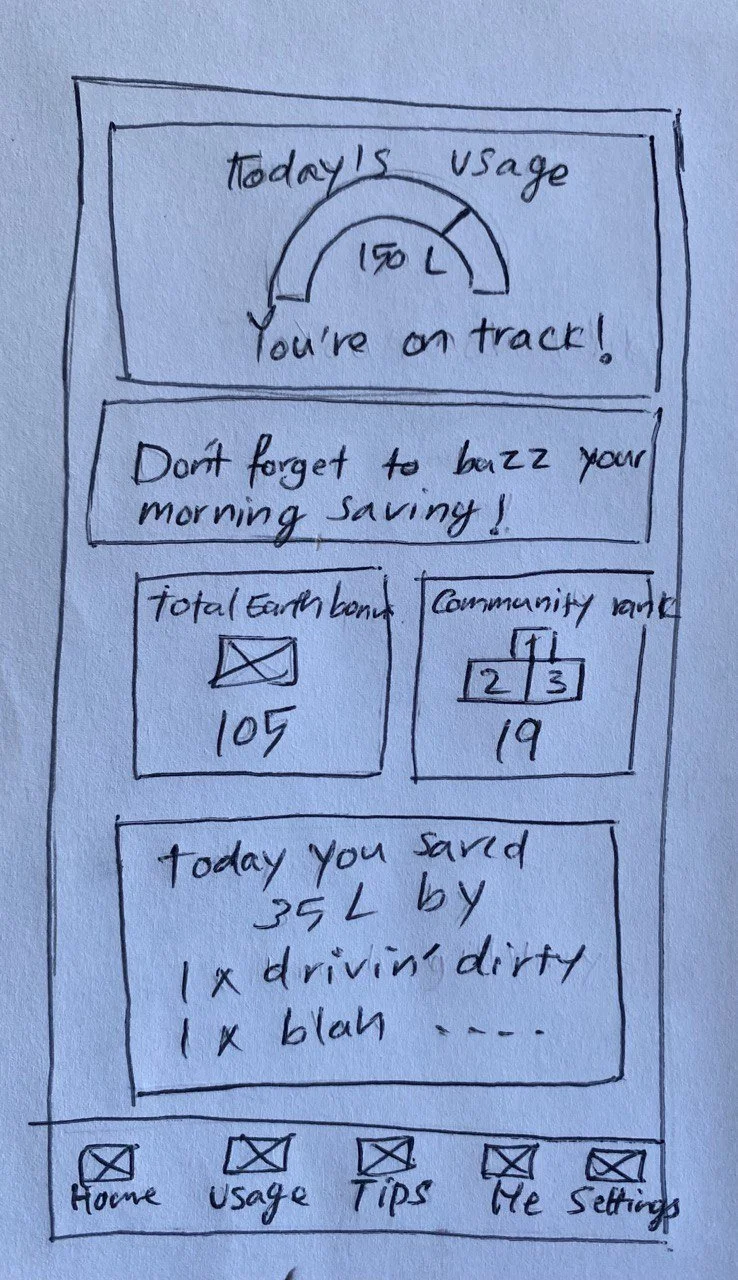 Today's usage
150 L
You're on track!
Don't forget to buzz your
morning saving!
Total Earth bonus
105
Community rank
1
2 3
19
Today you saved
35 L by
1 x drivin' dirty
1 x blah ----
Home Usage Tips Me Settings